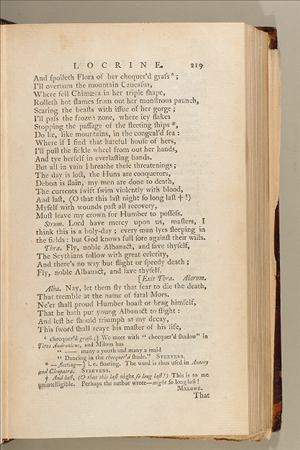 LOCRINE. 219
And spoileth Flora of her chequer'd grass*;
I'll overturn the mountain Caucasus,
Where fell Chimæra in her triple shape,
Rolleth hot flames from out her monstrous paunch,
Scaring the beasts with issue of her gorge;
I'll pass the frozen zone, where icy flakes
Stopping the passage of the fleeting ships*,
Do lie, like mountains, in the congeal'd sea:
Where if I find that hateful house of hers,
I'll pull the fickle wheel from out her hands,
And tye herself in everlasting bands.
But all in vain I breathe these threatenings;
The day is lost, the Huns are conquerors,
Debon is slain, my men are done to death,
The currents swift swim violently with blood,
And last, (O that this last night so long last †!)
Myself with wounds past all recovery,
Must leave my crown for Humber to possess.
Strum. Lord have mercy upon us, masters, I
think this is a holy-day; every man lyes sleeping in
the fields: but God knows full sore against their wills.
Thra. Fly, noble Albanact, and save thyself,
The Scythians follow with great celerity,
And there's no way but flight or speedy death;
Fly, noble Albanact, and save thyself.
[Exit Thra. Alarum.
Alba. Nay, let them fly that fear to die the death,
That tremble at the name of fatal Mors.
Ne'er shall proud Humber boast or brag himself,
That he hath put young Albanact to flight:
And lest he should triumph at my decay,
This sword shall reave his master of his life,
* chequer'd grass;] We meet with " chequer'd shadow" in
Titus Andronicus, and Milton has
" —— many a youth and many a maid
" Dancing in the chequer'd shade." STEEVENS.
* — fleeting—] i. e. floating. The word is thus used in Antony
and Cleopatra. STEEVENS.
† And last, (O that this last night so long last!) This is to me
unintelligible. Perhaps the author wrote—might so long last!
MALONE.
That